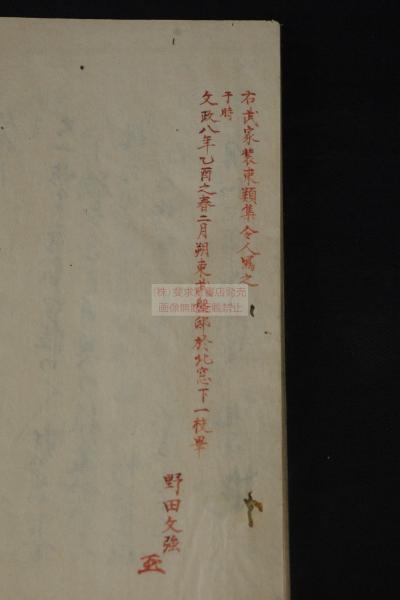 右武家装束類集令人写之
于時
文政八年乙酉之春二月朔東武盤邸於北窓下一校畢
野田文強
(株)斐求堂書店発売
画像無断転載禁止